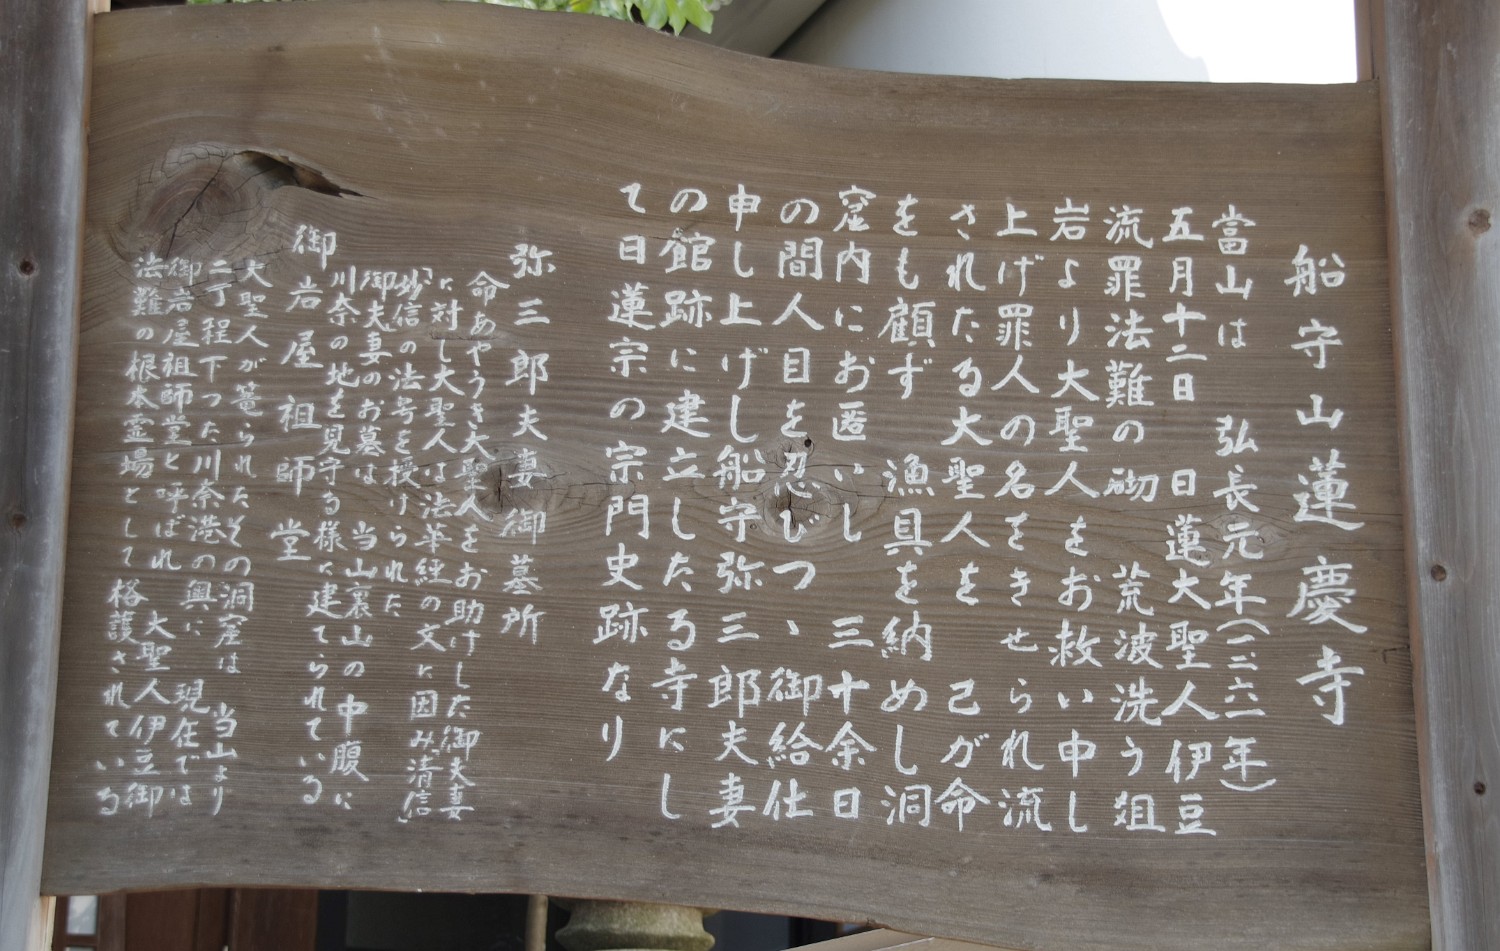 船守山蓮慶寺
當山は 弘長元年(一二六一年)
五月十二日 日蓮大聖人伊豆
流罪法難の砌 荒波洗う爼
岩より大聖人をお救い申し
上げ罪人の名をきせられ流
されたる大聖人を 己が命
をも顧ず 漁具を納めし洞
窟内にお匿いし 三十余日
の間人目を忍びつゝ 御給仕
申し上げし船守弥三郎夫妻
の館跡に建立したる寺にし
て日蓮宗の宗門史跡なり
弥三郎夫妻御墓所
命あやうき大聖人をお助けした御夫妻
に対し大聖人は法華経の文に因み「清信」
「妙信」の法号を授けられた
御夫妻のお墓は 当山裏山の中腹に
川奈の地を見守る様に建てられている
御岩屋祖師堂
大聖人が篭られたその洞窟は 当山より
二丁程下った川奈港の奥に 現在では
御岩屋祖師堂と呼ばれ 大聖人伊豆御
法難の根本霊場として格護されている